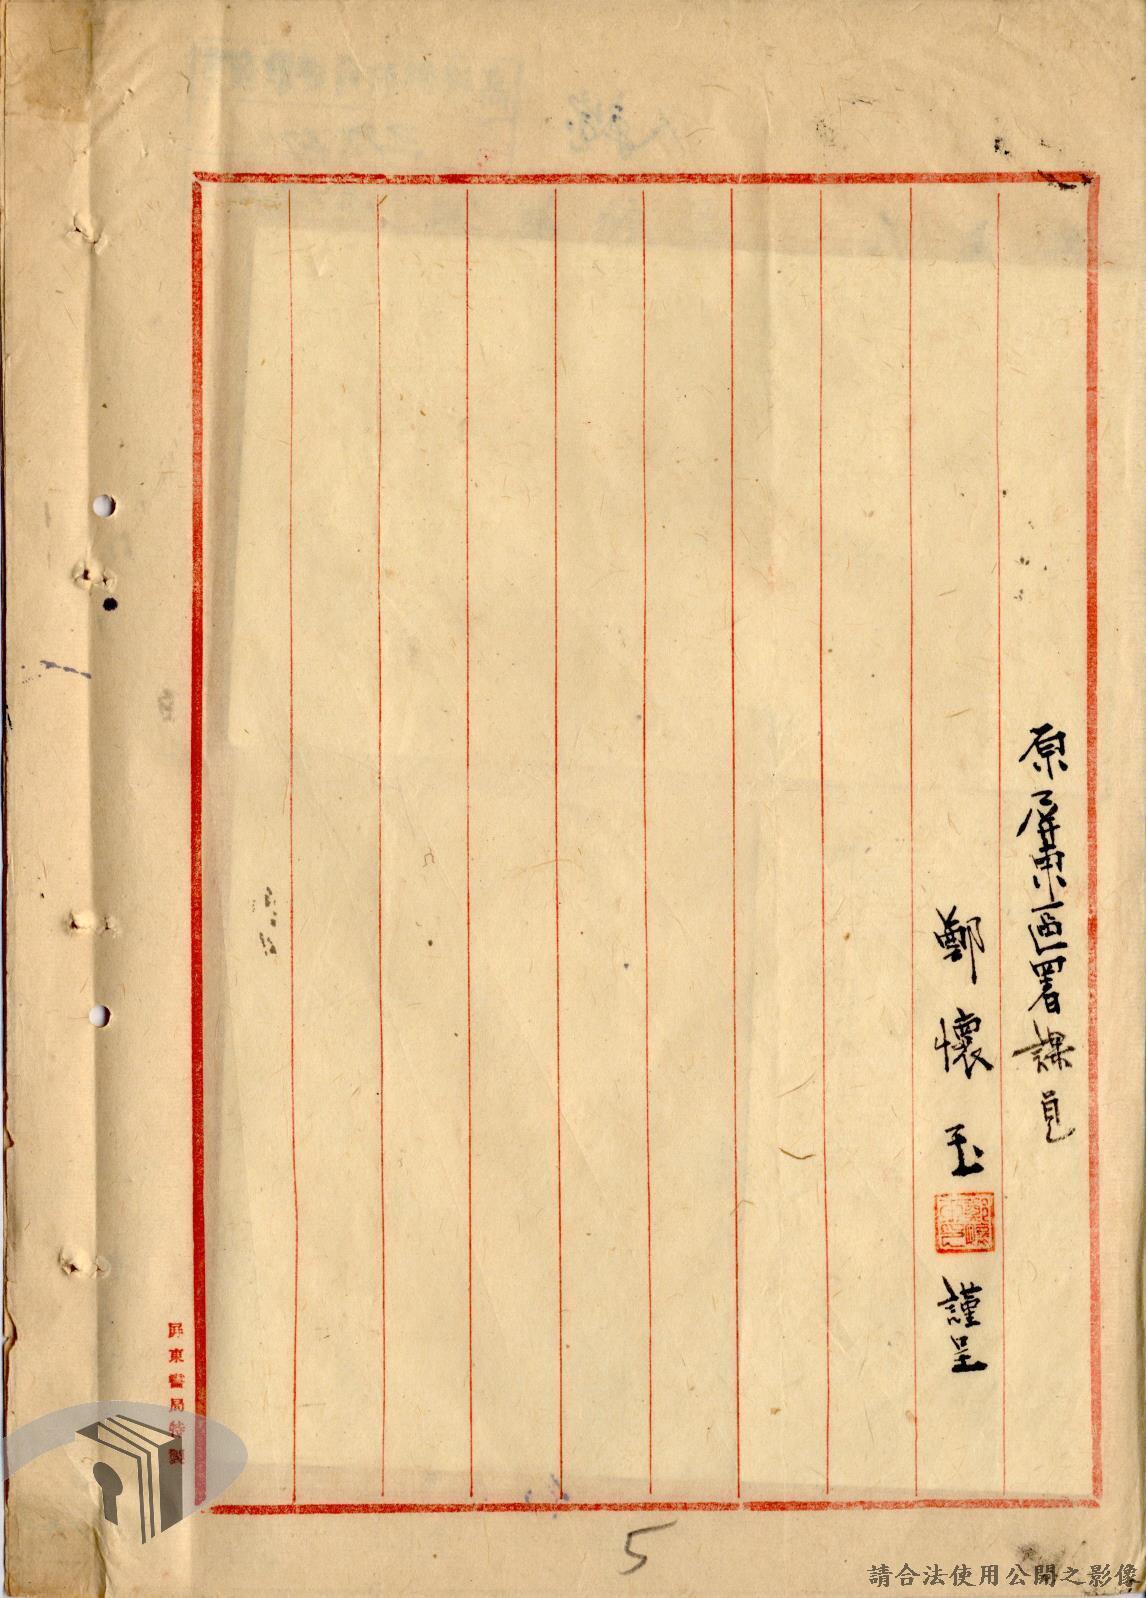 原屏東區署課員
鄭懷玉 謹呈
屏東書局特製
5
請合法使用公開之影像